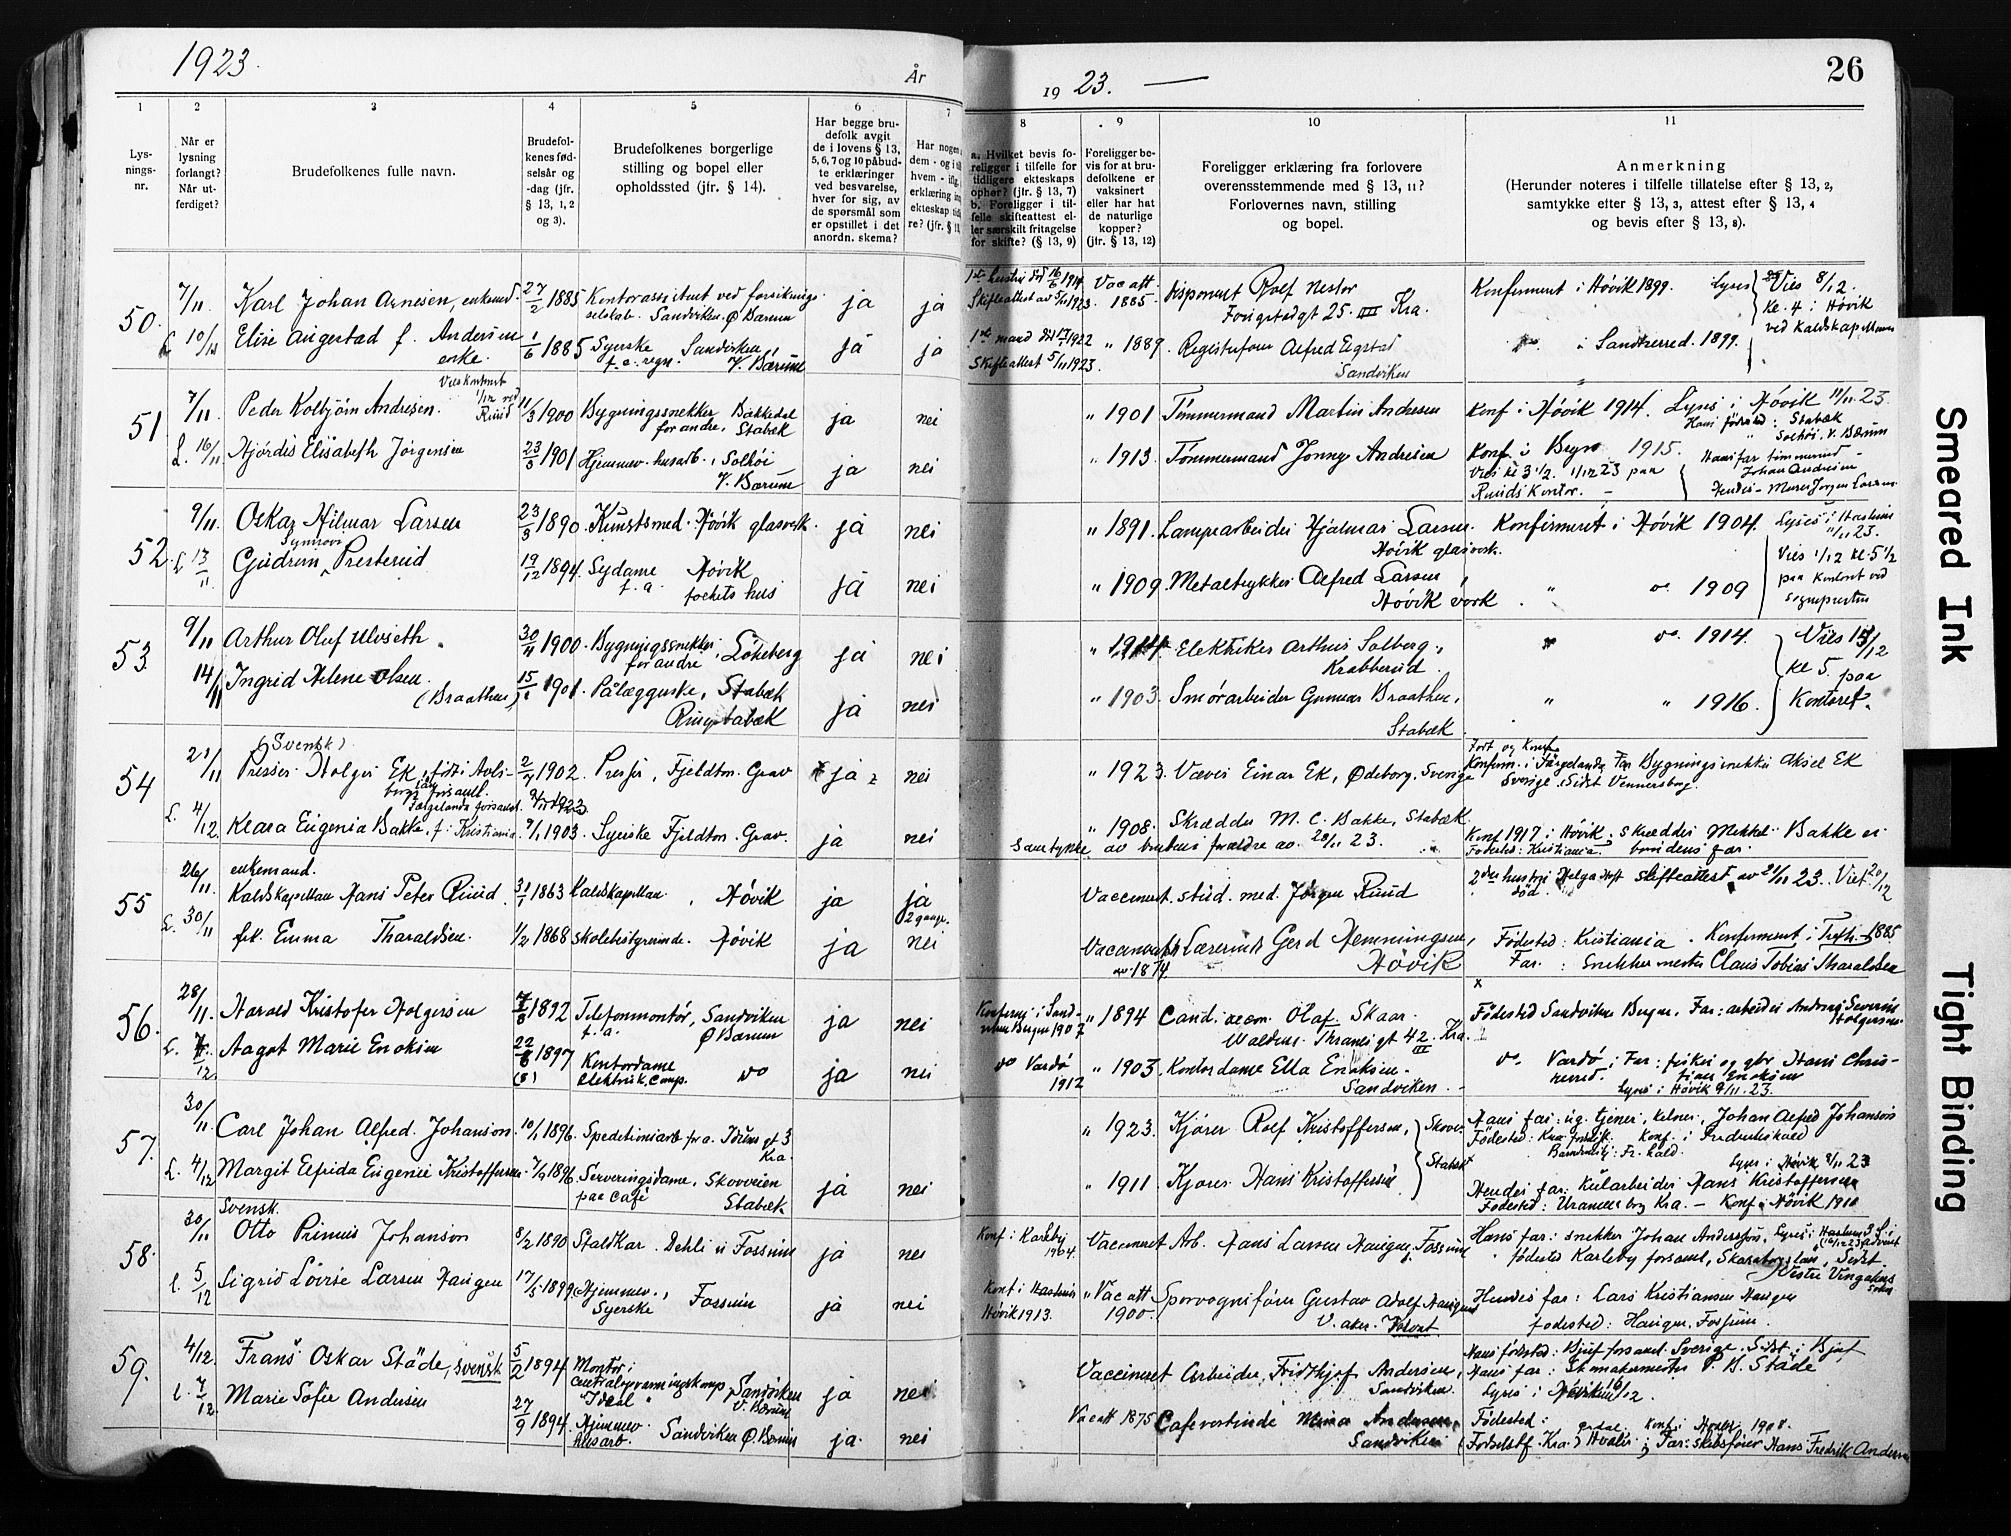 1923.
År
19 23. —
26
1
2
3
4
5
6
7
8
9
10
11
Lys-
nings-
nr.
Når er
lysning
forlangt?
Når ut-
ferdiget?
Brudefolkenes fulle navn.
Brudefol-
kenes fød-
selsår og
-dag (jfr.
§ 13, 1, 2
og 3).
Brudefolkenes borgerlige
stilling og bopel eller
opholdssted (jfr. § 14).
Har begge bru-
defolk avgit
de i lovens § 13,
5, 6, 7 og 10 påbud-
te erklæringer
ved besvarelse,
hver for sig, av
de spørsmål som
er opstillet i det
anordn. skema?
Har nogen
dem - og i
hvem - iflg.
erklæring
ekteskap
re? (jfr. §
a. Hvilket bevis fo-
religger i tilfelle for
tidligere ekteskaps
ophør? (jfr. § 13, 7)
b. Foreligger i til-
felle skifteattest el-
ler særskilt fritagelse
for skifte? (§ 13, 9)
Foreligger be-
vis for at bru-
defolkene er
vaksinert
eller har hat
de naturlige
kopper?
(jfr. § 13, 12)
Foreligger erklæring fra forlovere
overensstemmende med § 13, 11?
Forlovernes navn, stilling
og bopel.
Anmerkning
(Herunder noteres i tilfelle tillatelse efter § 13, 2,
samtykke efter § 13, 3, attest efter § 13, 4
og bevis efter § 13, 8).
50.
7/11
Karl Johan Arnesen, enkemd.
27/2 1885
Kontorassistent ved forsiknings-
selskab. Sandviken. Ø Bærum
ja
ja
1ste hustru død 16/6 1914
Skifteattest av 5/11 1923.
Vac att
1885
Disponent Rolf Nestor
25. III Kra.
Konfirmert i Høvik 1899. Lyses
Vies 8/12.
Kl. 4 i Høvik
L 10/11
Elise Augestad f. Andersen
enke.
1/6 1885
Syerske Sandviken,
f. e. regn. V. Bærum
ja
ja
1ste mand død 1922
Skifteattest 5/11 1923
" 1889.
Alfred Egstad
Sandviken
i Sandherred. 1899.
51
7/11
Peder Kolbjörn Andresen.
1/12 ved
Ruud
11/3 1900
Bygningssnekker Bakkedal
for andre, Stabæk
ja
nei
" 1901
Tömmermand Martin Andresen
Konf i Høvik 1914. Lyses i Høvik 11/11 23.
Hans fødested: Stabæk
" Solhöi, V. Bærum
L. 16/11
Hjördis Elisabeth Jörgensen
23/3 1901
Hjemmev. husarb., Solhöi
V. Bærum
ja
nei
" 1913.
Tömmermand Jonny Andresen
Konf. i Bergn 1915.
Vies kl 3 1/2. 1/12 23 paa
Ruuds Kontor. —
Hans far tömmermd -
Johan Andresen
Hendes - Murer Jörgen Larsen
52.
9/11
Oskar Hilmar Larsen
23/3 1890.
Kunstsmed. Høvik glasverk.
ja
nei
" 1891.
Lampearbeider Hjalmar Larsen
Høvik glasverk.
Konfirmeret i Høvik 1904.
Lyses i Haslum
11/11 23.
Vies 1/12 kl. 5 1/2
paa Kontoret ved
Sogneprsten
L 13/11
Synnøve
Gudrun Presterud
19/12 1894.
Sydame Høvik
f. a. fochets hus
ja
nei
" 1909.
Metaltrykker Alfred Larsen,
Høvik verk
" do 1909
53
9/11
Arthur Oluf Ulvseth
30/11 1900.
Bygningssnekker
for andre, Løkeberg
ja
nei
" 1914
Elektriker Arthur Solberg,
Krabberud.
" do. 1914.
Vies 15/12
kl 5. paa
Kontoret.
14/11
Ingrid Helene Olsen
(Braathen)
15/1 1901.
Pålæggerske, Stabæk
Ringstabæk
ja
nei
" 1903.
Smørarbeider Gunnar Braathen,
Stabæk
" " 1916.
54
21/11
(Svensk)
Presser Holger Ek,
Færgelanda forsaml.
2/7 1902.
Presser, Fjeldton. Grav
ja
nei
" 1923.
Væver Einar Ek, Ødeborg, Sverige
Født og Konf.
Konfirm. i Færgelanda Far Bygningssnekker Aksel Ek
Sverige. Sidst Vennersborg.
L. 4/12
Klara Eugenia Bakke, f. i Kristiania.
9/1 1903.
Syerske Fjeldton. Grav.
ja
nei
Samtykke av brudens forældre av. 20/11 23.
" 1908.
Skrædder M. C. Bakke, Stabæk
Konf 1917 i Høvik. Skrædder Mekkel Bakke er
Fødested: Kristiania. brudens far.
55
26/11
enkemand.
Kaldskapellan Hans Peter Ruud
31/1 1863
Kaldskapellan, Høvik
ja
ja
2 gange.
Vaccineret.
stud. med. Jørgen Ruud
2den hustru Helga Hoff skifteattest av 21/11 23. Viet 20/12
død.
L. 30/11
frk. Emma Tharaldsen.
1/2 1868
Skolebestyrerinde. Høvik
ja
nei
av 1874
Lærerinde Gerd Hemmingsen,
Høvik
Fødested: Kristiania. Konfirmert i Trefk. 1885
Far: Snekkermester Claus Tobias Tharaldsen
56.
28/11.
Harald Kristofer Holgersen
7/8 1892
Telefonmontør, Sandviken
f. a. Ø Bærum
ja
nei
Konfirmr i Sand-
viken Bergen 1907
" 1894
Cand. oecon Olaf Skaar
Waldem. Thranes gt 42 III. Kra.
Fødested Sandviken Bergen. Far: arbeider Andreas Severin
Holgersen
L. 7/12.
Aagot Marie Enoksen
22/8 1897
(8)
Kontordame
Elektrisk. Comp. do
ja
nei
do Vardø
1912
" 1903
Kontordame Ella Enoksen
Sandviken.
do. Vardø; Far: fisker og gbr Hans Chris-
herred. tian Enoksen
Lyses i Høvik 9/11. 23.
57.
30/11
Carl Johan Alfred Johanson
10/1 1896.
Spedetionsarb fr a. Idunsgt 3
Kra.
" 1923.
Kjører Rolf Kristoffersen,
Skovei
Stabæk
Hans far: ug. tjener, kelner, Johan Alfred Johanson
Fødested: Kra. Konf. i Fredrikshald
L. 4/12
Margit Elfrida Eugenie Kristoffersen
7/9 1896
Serveringsdame, Skoveien
paa Café Stabæk
ja
nei
" 1911.
Kjører Hans Kristoffersen
Lyses i Høvik 9/11 23
Hendes far: Kularbeider Hans Kristoffersen
Fødested: Uranienborg Kra. — Konf i Høvik 1910
58.
30/11
Svensk.
Otto Primus Johanson
8/2 1890
Staldkar. Dehli i Fossum
ja
nei
Konf: Karleby
1904.
Vaccineret
Arb. Hans Larsen Haugen, Fossum
Hans far: snekker Johan Andersson, Lyses i Haslum 3 S i
(16/12 23) advent
" fødested Karleby forsaml, Skaraborgs län, Sidst
Vestre Vingakers
L. 5/12
Sigrid Lovise Larsen Haugen
17/5 1899
Hjemmev.,
Syerske Fossum
ja
nei
Konf i Haslum
Høvik 1913.
" Vac att
1900.
Sporvognsfører Gustav Adolf Haugens
V. aker.
Hendes far: Lars Kristiansen Haugen
fødested: Haugen, Fossum.
59.
4/12.
Frans Oskar Städe, svensk
5/2 1894.
Montør:
Centralopvarmningskomp.
Ideal Sandviken
V. Bærum
ja
nei
Vaccineret
Arbeider, Fridthjof Andersen,
Sandviken.
Hans fødested: Bjuf forsaml Sverige. Sidst i Bjuf
Hans far: Skomakermester P. B. Städe
Lyses i Høviken 16/12.
L. 7/12.
Marie Sofie Andersen
27/9 1894.
Hjemmev
Husarb. Sandviken Ø. Bærum
ja.
nei
Vac att 1875
Cafévertinde Mina Andersen,
Sandviken
Fødested:
Konf i Hvaler 1908.
(Fødselatt. Kra.) Hvaler; Far: skibsfører Hans Fredrik Andersen
Smeared Ink
Tight Binding